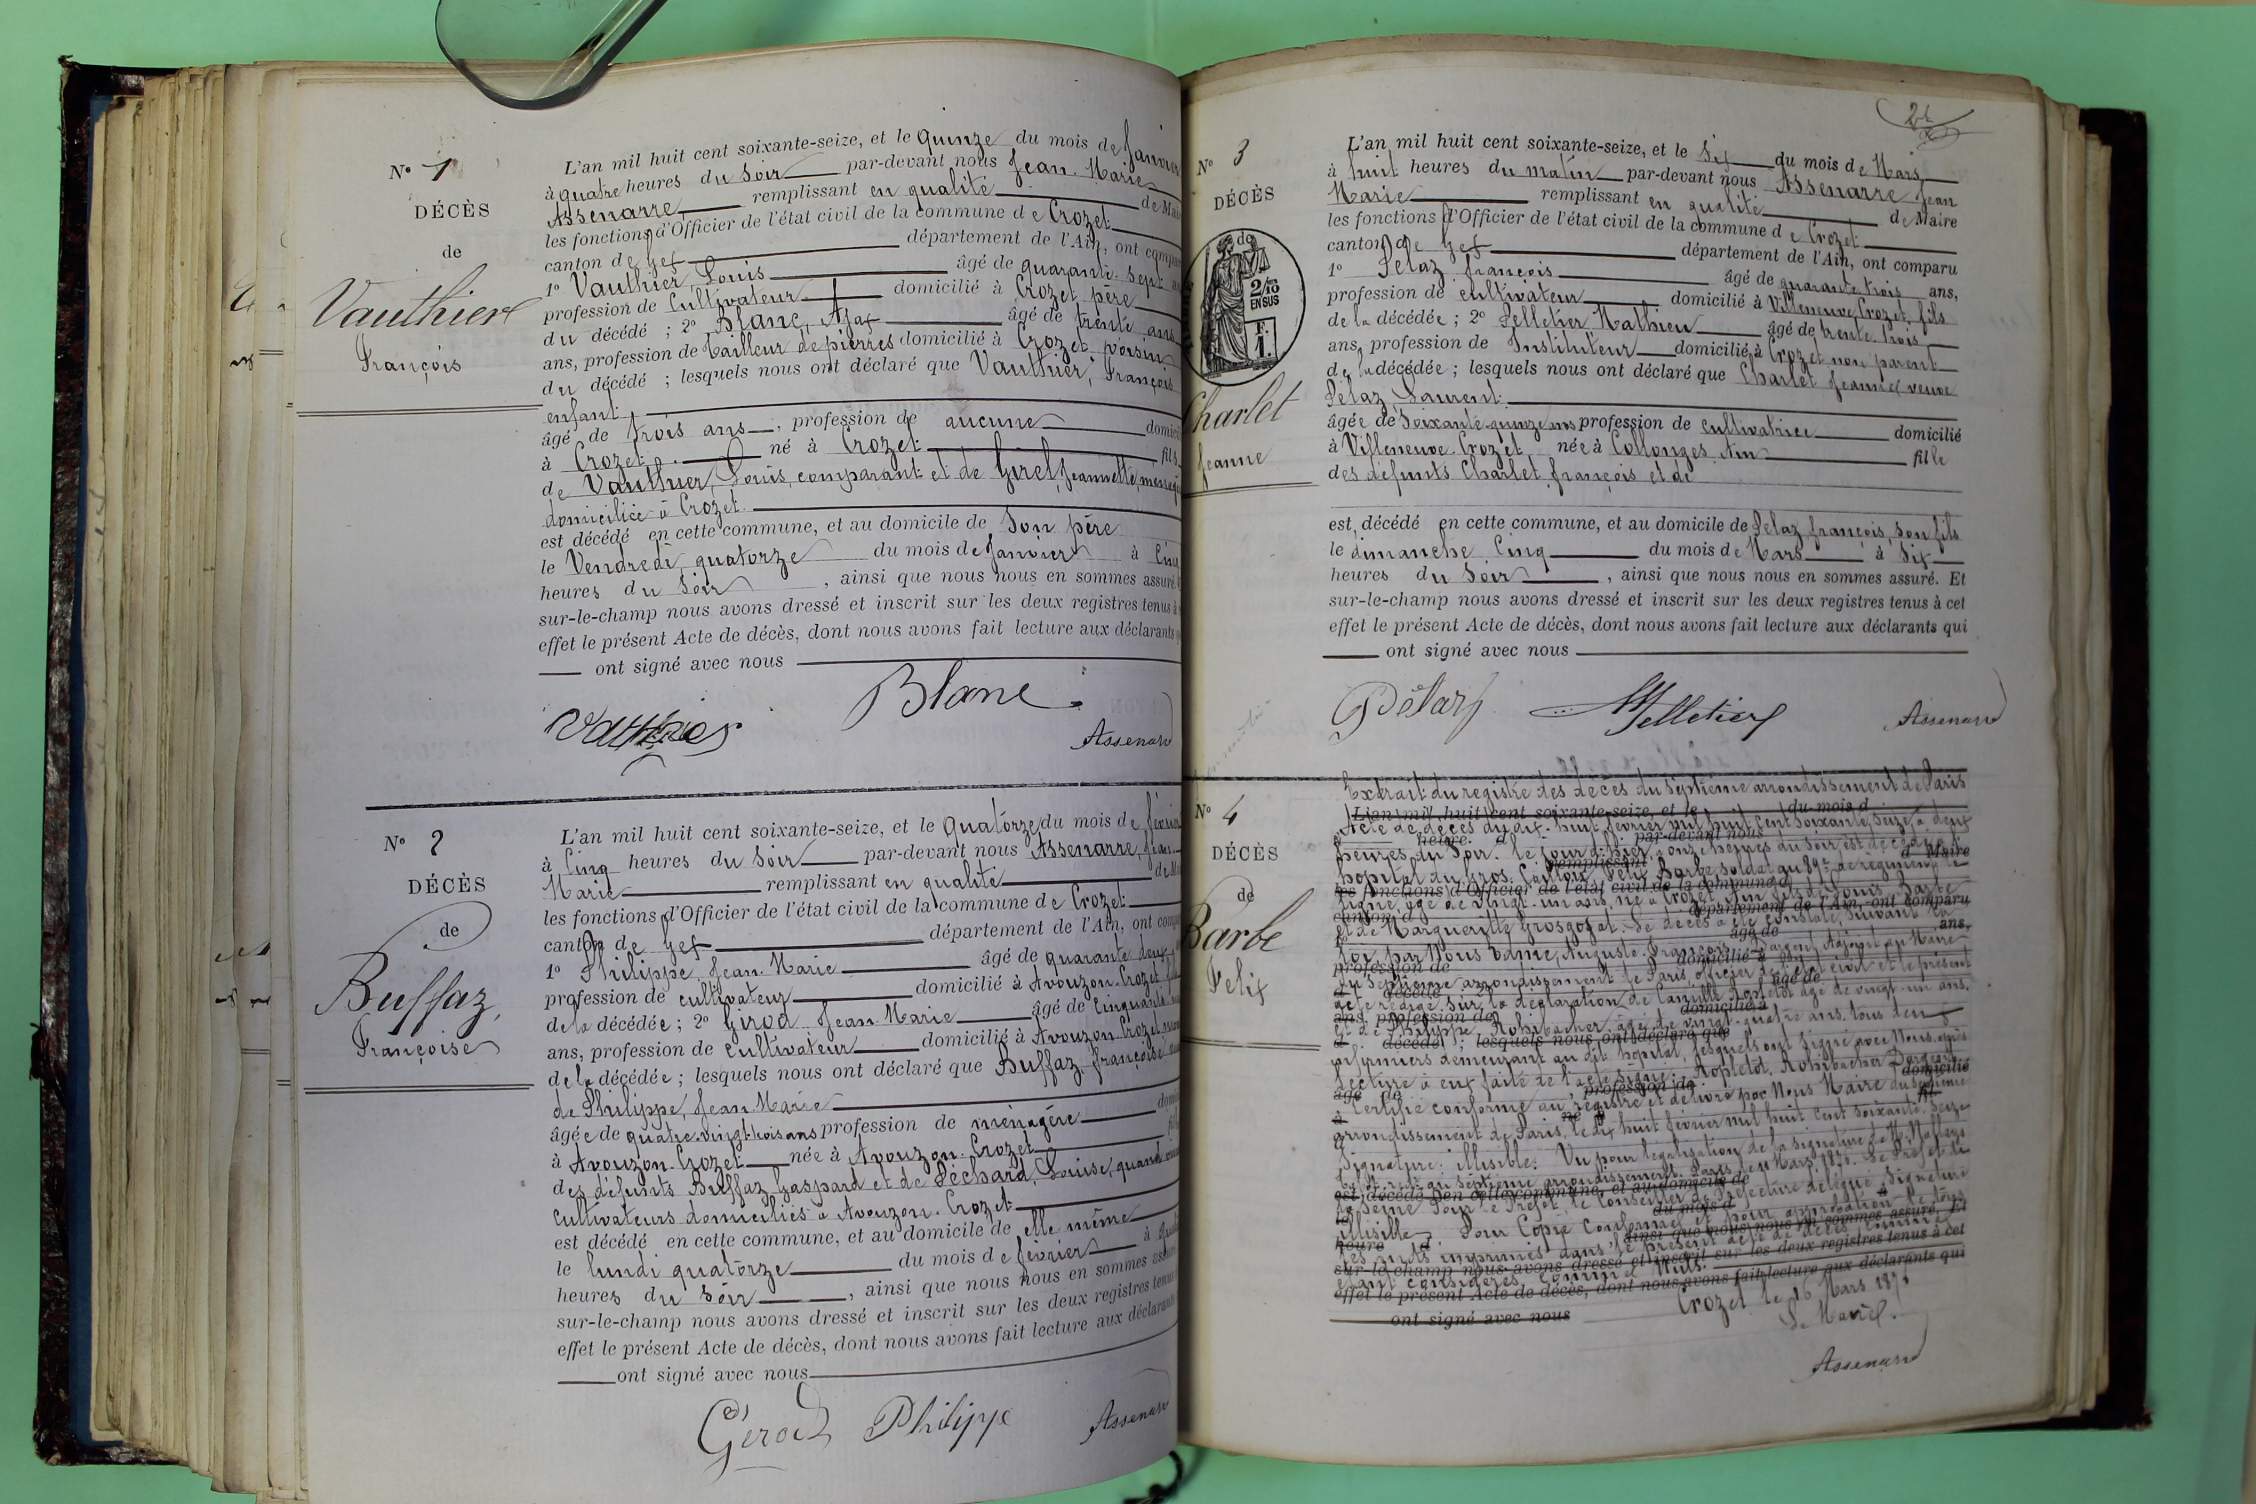 N° 1
DÉCÈS
de
Vauthier
François
L'an mil huit cent soixante-seize, et le Quinze du mois de Janvier
à quatre heures du Soir par-devant nous Jean-Marie
Assenarre remplissant en qualité de Mai
les fonctions d'Officier de l'état civil de la commune de Crozet
canton de Gex département de l'Ain, ont compa
1° Vauthier, Louis âgé de quarante-sept
profession de Cultivateur domicilié à Crozet père
du décédé ; 2° Blanc, Ajax âgé de trente ans
ans, profession de tailleur de pierres domicilié à Crozet voisin
du décédé ; lesquels nous ont déclaré que Vauthier, François
enfant
âgé de trois ans, profession de aucune domicil
à Crozet né à Crozet fils
de Vauthier, Louis, comparant et de Girel, Jeannette,
domiciliée à Crozet.
est décédé en cette commune, et au domicile de Son père
le Vendredi quatorze du mois de Janvier à Cinq
heures du Soir, ainsi que nous nous en sommes assuré.
sur-le-champ nous avons dressé et inscrit sur les deux registres tenus à
effet le présent Acte de décès, dont nous avons fait lecture aux déclarants
ont signé avec nous
Vauthier Blanc Assenarre
N° 2
DÉCÈS
de
Buffaz,
Françoise
L'an mil huit cent soixante-seize, et le Quatorze du mois de février
à Cinq heures du Soir par-devant nous Assenarre, Jean-
Marie remplissant en qualité de Ma
les fonctions d'Officier de l'état civil de la commune de Crozet
canton de Gex département de l'Ain, ont compa
1° Philippe, Jean-Marie âgé de quarante deux
profession de cultivateur domicilié à Avouzon-Crozet
de la décédée ; 2° Girod Jean-Marie âgé de Cinquante
ans, profession de cultivateur domicilié à Avouzon-Crozet
de la décédée ; lesquels nous ont déclaré que Buffaz, françoise
de Philippe, Jean-Marie
âgée de quatre-vingt-trois ans profession de ménagère domi
à Avouzon-Crozet née à Avouzon-Crozet
des défunts Buffaz Gaspard et de Péchard, Louise, quand
cultivateurs domiciliés à Avouzon-Crozet
est décédé en cette commune, et au domicile de elle même
le lundi quatorze du mois de février à
heures du Soir, ainsi que nous nous en sommes assuré
sur-le-champ nous avons dressé et inscrit sur les deux registres tenus
effet le présent Acte de décès, dont nous avons fait lecture aux déclarants
ont signé avec nous
Gérod Philippe Assenarre
N° 3
DÉCÈS
de
2/10
EN SUS
F.
1.
Charlet
Jeanne
L'an mil huit cent soixante-seize, et le Six du mois de Mars
à huit heures du matin par-devant nous Assenarre Jean
Marie remplissant en qualité de Maire
les fonctions d'Officier de l'état civil de la commune de Crozet
canton de Gex département de l'Ain, ont comparu
1° Pélaz, françois âgé de quarante trois ans,
profession de cultivateur domicilié à Villeneuve, Crozet, fils
de la décédée ; 2° Pelletier, Mathieu âgé de trente-trois
ans, profession de Instituteur domicilié à Crozet non parent
de la décédée ; lesquels nous ont déclaré que Charlet Jeanne, veuve
Pélaz, Laurent
âgée de Soixante-quinze ans profession de cultivatrice domicilié
à Villeneuve-Crozet née à Collonges, Ain fille
des défunts Charlet, françois et de
est décédé en cette commune, et au domicile de Pelaz, françois, son fils
le dimanche Cinq du mois de Mars à Six
heures du Soir, ainsi que nous nous en sommes assuré. Et
sur-le-champ nous avons dressé et inscrit sur les deux registres tenus à cet
effet le présent Acte de décès, dont nous avons fait lecture aux déclarants qui
ont signé avec nous
Pélaz Pelletier Assenarre
N° 4
DÉCÈS
de
Barbe
Felix
Extrait du registre des décès du Septième arrondissement de Paris
Acte de décès du dix-huit février mil huit cent soixante-seize à deux
heures du Soir. le jour d'hier à onze heures du soir, est décédé à l'
hôpital du Gros-Caillou, Félix Barbe, soldat au 89e de régiment de
ligne, âgé de vingt-un ans, né à Crozet, Ain, fils de Louis Barbe
et de Marguerite Grosgojat. Le décès a été constaté suivant la
loi par Nous Auguste-François Dargent, Adjoint au Maire
du Septième arrondissement de Paris, officier de l'état civil et le présent
acte rédigé sur la déclaration de Camille Hopletot âgé de vingt-un ans,
et de Philippe Rohrbacher âgé de vingt-quatre ans, tous deux
infirmiers demeurant au dit hôpital, lesquels ont signé avec Nous, après
lecture à eux faite de l'acte. Signé: Hopletot, Rohrbacher, Dargent.
Certifié conforme au registre et délivré par Nous Maire du Septième
arrondissement de Paris, le dix huit février mil huit cent soixante-seize
Signature: illisible. Vu pour légalisation de la signature de M.
au Septième arrondissement. Paris, le Mars 1876. Le Préfet de
la Seine Pour le Préfet, le Conseiller de Préfecture délégué, Signature
illisible. Pour Copie Conforme et pour approbation de tous
les mots imprimés dans le présent acte de décès comme
étant considérés comme Nuls.
Crozet le 16 Mars 1876
Le Maire.
Assenarre